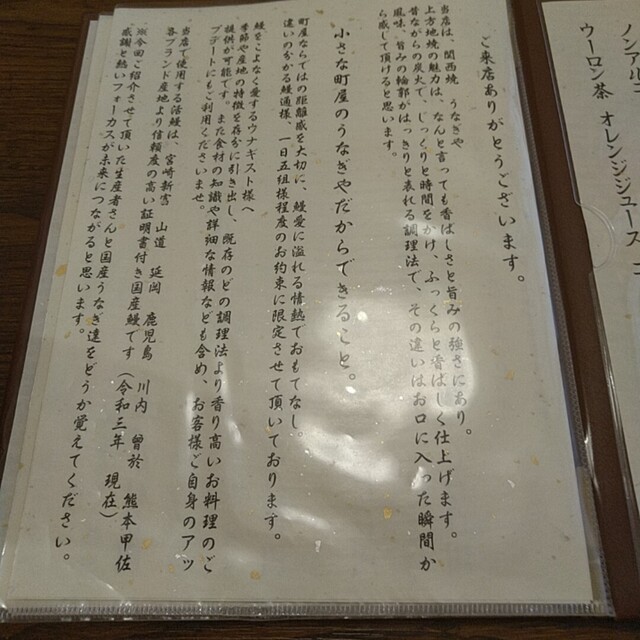 ノンアルコ
ウーロン茶 オレンジジュース
ご来店ありがとうございます。
当店は、関西焼 うなぎや
上方地焼の魅力は、なんと言っても香ばしさと旨みの強さにあり。
昔ながらの炭火で、じっくりと時間をかけ、ふっくらと香ばしく仕上げます。
風味、旨みの輪郭がはっきりと表れる調理法で、その違いはお口に入った瞬間か
ら感して頂けると思います。
小さな町屋のうなぎやだからできること。
町屋ならではの距離感を大切に、鰻愛に溢れる情熱でおもてなし。
違いの分かる鰻通様、一日五組様程度のお約束に限定させて頂いております。
鰻をこよなく愛するウナギスト様へ
季節や産地の特徴を存分に引き出し、既存のどの調理法より香り高いお料理のご
提供が可能です。また食材の知識や詳細な情報なども含め、お客様ご自身のアッ
プデートにもご利用くださいませ。
当店で使用する活鰻は、宮崎新富 山道 延岡 鹿児島 川内 曽於 熊本甲佐
各ブランド産地より信頼度の高い証明書付き国産鰻です（令和三年 現在）
※今回ご紹介させて頂いた生産者さんと国産うなぎ達をどうか覚えてください。
感謝と熱いフォーカスが未来につながると思います。